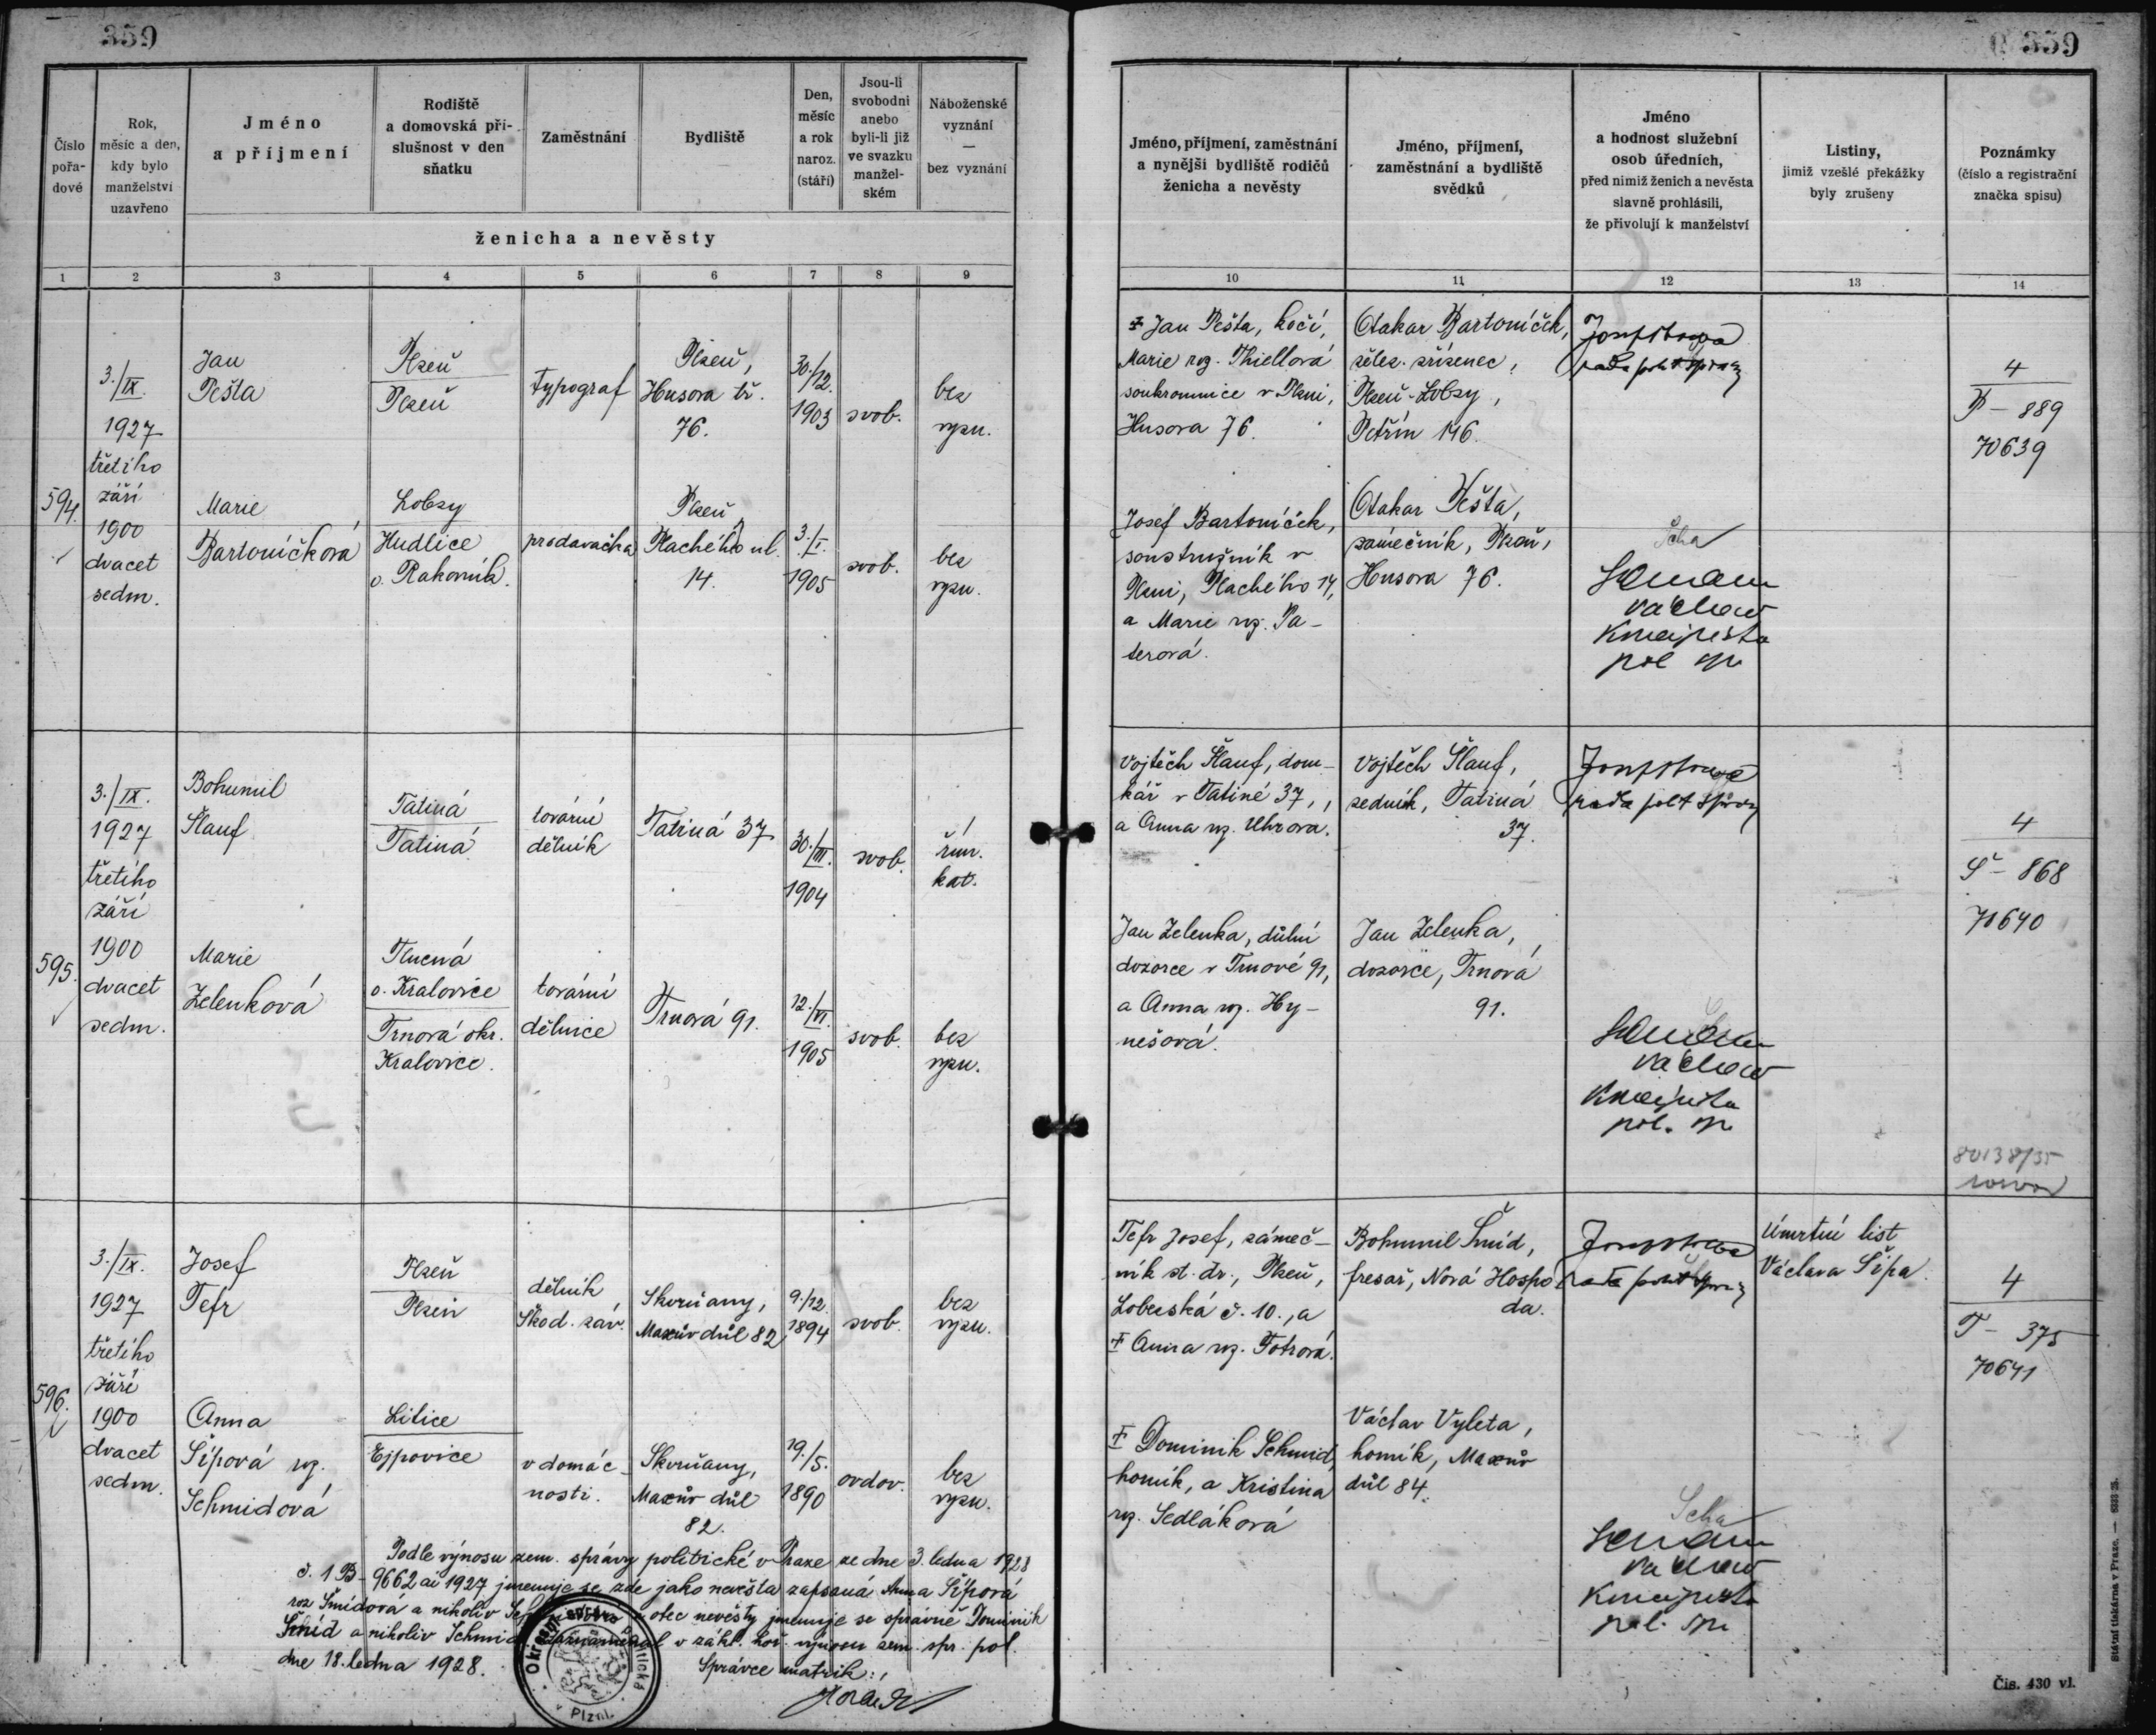 359
359
Číslo pořa-dové
Rok, měsíc a den, kdy bylo manželství uzavřeno
Jméno a příjmení
Rodiště a domovská při-slušnost v den sňatku
Zaměstnání
Bydliště
Den, měsíc a rok naroz. (stáří)
Jsou-li svobodni anebo byli-li již ve svazku manžel-ském
Náboženské vyznání — bez vyznání
ženicha a nevěsty
Jméno, příjmení, zaměstnání a nynější bydliště rodičů ženicha a nevěsty
Jméno, příjmení, zaměstnání a bydliště svědků
Jméno a hodnost služební osob úředních, před nimiž ženich a nevěsta slavně prohlásili, že přivolují k manželství
Listiny, jimiž vzešlé překážky byly zrušeny
Poznámky (číslo a registrační značka spisu)
1 2 3 4 5 6 7 8 9 10 11 12 13 14
594.
3./IX.
1927
třetího
září
1900
dvacet
sedm.
Jan
Pešta
Plzeň
Plzeň
typograf
Plzeň,
Husova tř.
76.
30./12.
1903
svob.
bez
vyzn.
Marie
Bartoníčková
Lobzy
Hudlice
o. Rakovník.
prodavačka
Plzeň
Plachého ul.
14.
3./I.
1905
svob.
bez
vyzn.
Jan Pešta, kočí,
Marie roz. Thiellová
soukromnice v Plzni,
Husova 76.
Josef Bartoníček,
soustružník v
Plzni, Plachého 14,
a Marie roz. Pa-
terová.
Otakar Bartoníček,
želez. zřízenec,
Plzeň-Lobzy,
Petřín 146.
Otakar Pešta,
zámečník, Plzeň,
Husova 76.
rada polit správy
pol. spr.
4
P - 889
70639
595.
3./IX.
1927
třetího
září
1900
dvacet
sedm.
Bohumil
Šlauf
Tatiná
Tatiná
tovární
dělník
Tatiná 37
30./III.
1904
svob.
řím.
kat.
Marie
Zelenková
Tlucná
o. Kralovice
Trnová okr.
Kralovice.
tovární
dělnice
Trnová 91.
12./VI.
1905
svob.
bez
vyzn.
Vojtěch Šlauf, dom-
kář v Tatiné 37,
a Anna roz. Uhrova.
Jan Zelenka, důlní
dozorce v Trnové 91,
a Anna roz. Hy-
nešová.
Vojtěch Šlauf,
zedník, Tatiná
37.
Jan Zelenka,
dozorce, Trnová
91.
rada polit správy
pol. spr.
4
Š - 868
70640
80138/35
rozvod
596.
3./IX.
1927
třetího
září
1900
dvacet
sedm.
Josef
Tefr
Plzeň
Plzeň
dělník
Škod. záv.
Skvrňany,
Maxův důl 82
9./12.
1894
svob.
bez
vyzn.
Anna
Šípová roz.
Schmidová
Litice
Ejpovice
v domác-
nosti.
Skvrňany,
Maxův důl
82.
19./5.
1890
ovdov.
bez
vyzn.
Tefr Josef, zámeč-
ník st. dr., Plzeň,
Lobezská č. 10., a
Anna roz. Fotrová.
Dominik Schmid,
horník, a Kristina
roz. Sedláková
Bohumil Šmíd,
fresař, Nová Hospo
da.
Václav Vyleta,
horník, Maxův
důl 84.
rada polit správy
pol. spr.
Úmrtní list
Václava Šípa.
4
T - 375
70641
Podle výnosu zem. správy politické v Praze ze dne 3. ledna 1928
č. 1 B - 9662 ai 1927 jmenuje se zde jako nevěsta zapsaná Anna Šípová
roz Šmídová a nikoliv otec nevěsty jmenuje se správně Dominik
Šmíd a nikoliv Schmid. Zaznamenal v zákl. hoř. výnosu zem. spr. pol.
dne 18. ledna 1928.
Správce matrik:
Okresní správa politická v Plzni.
Státní tiskárna v Praze. —
Čís. 430 vl.